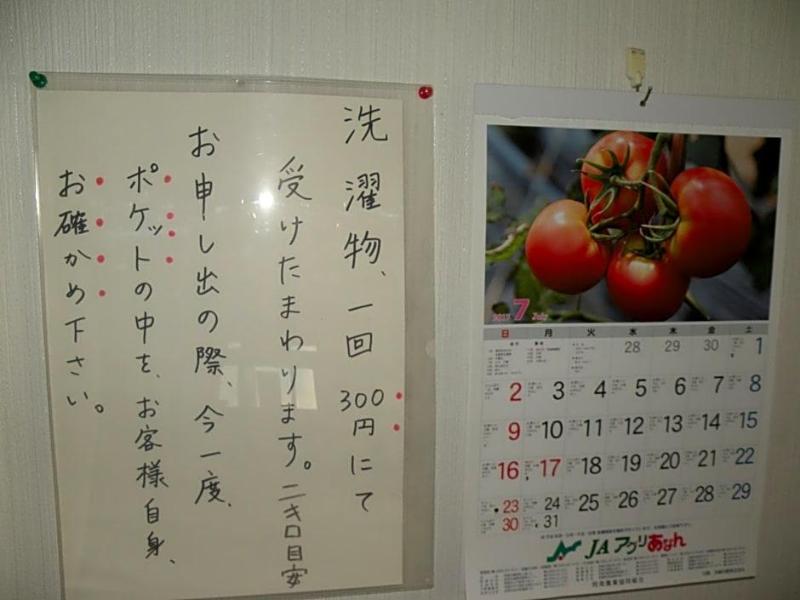 洗濯物、一回 300円にて
受けたまわります。二キロ目安
お申し出の際、今一度、
ポケットの中を、お客様自身、
お確かめ下さい。
7 July
日 月 火 水 木 金 土
28 29 30 1
2 3 4 5 6 7 8
9 10 11 12 13 14 15
16 17 18 19 20 21 22
23 24 25 26 27 28 29
30 31
JA アグリあなん